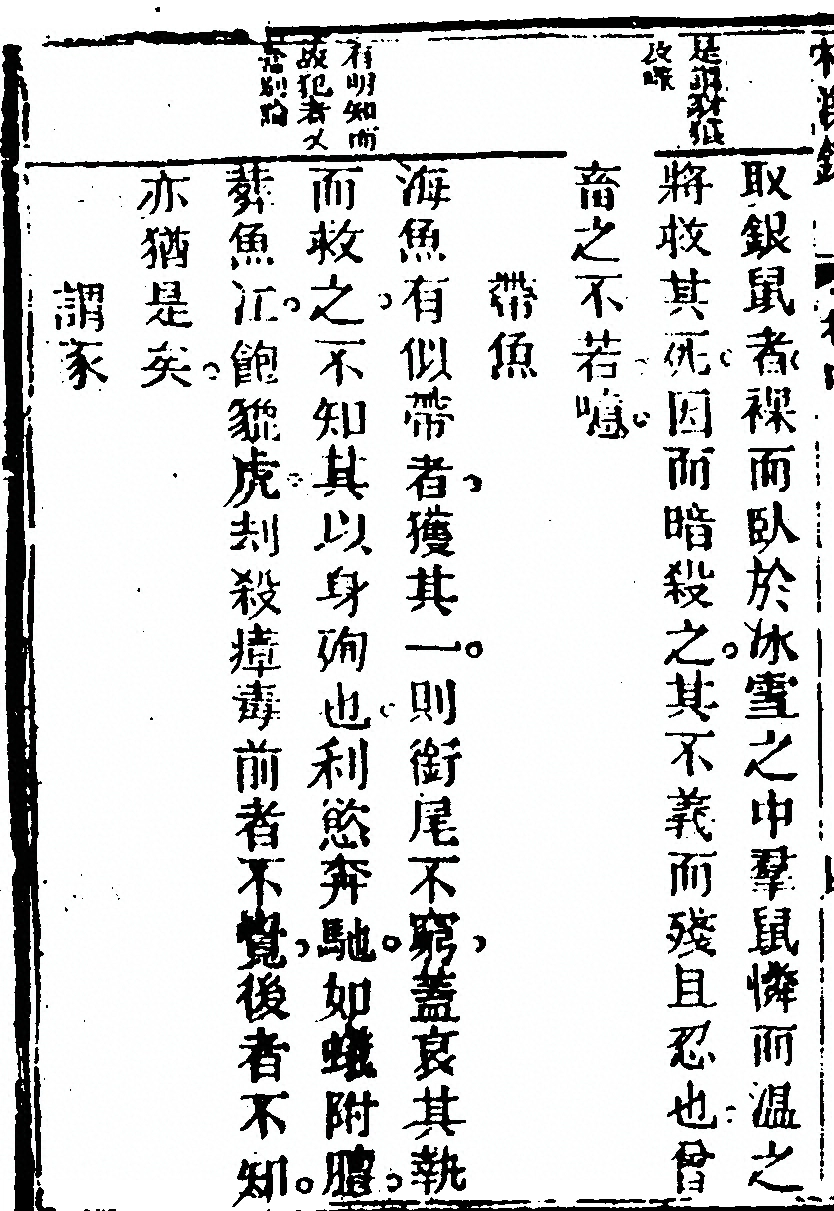 是謂豺狼
有明知而
故犯者又
當別論
取銀鼠者裸而臥於冰雪之中羣鼠憐而溫之
將救其死因而暗殺之其不義而殘且忍也曾
畜之不若噫
帶魚
海魚有似帶者獲其一則銜尾不窮蓋哀其執
而救之不知其以身殉也利慾奔馳如蟻附膻
葬魚江飽貔虎刦殺瘴毒前者不覺後者不知
亦猶是矣
謂豕